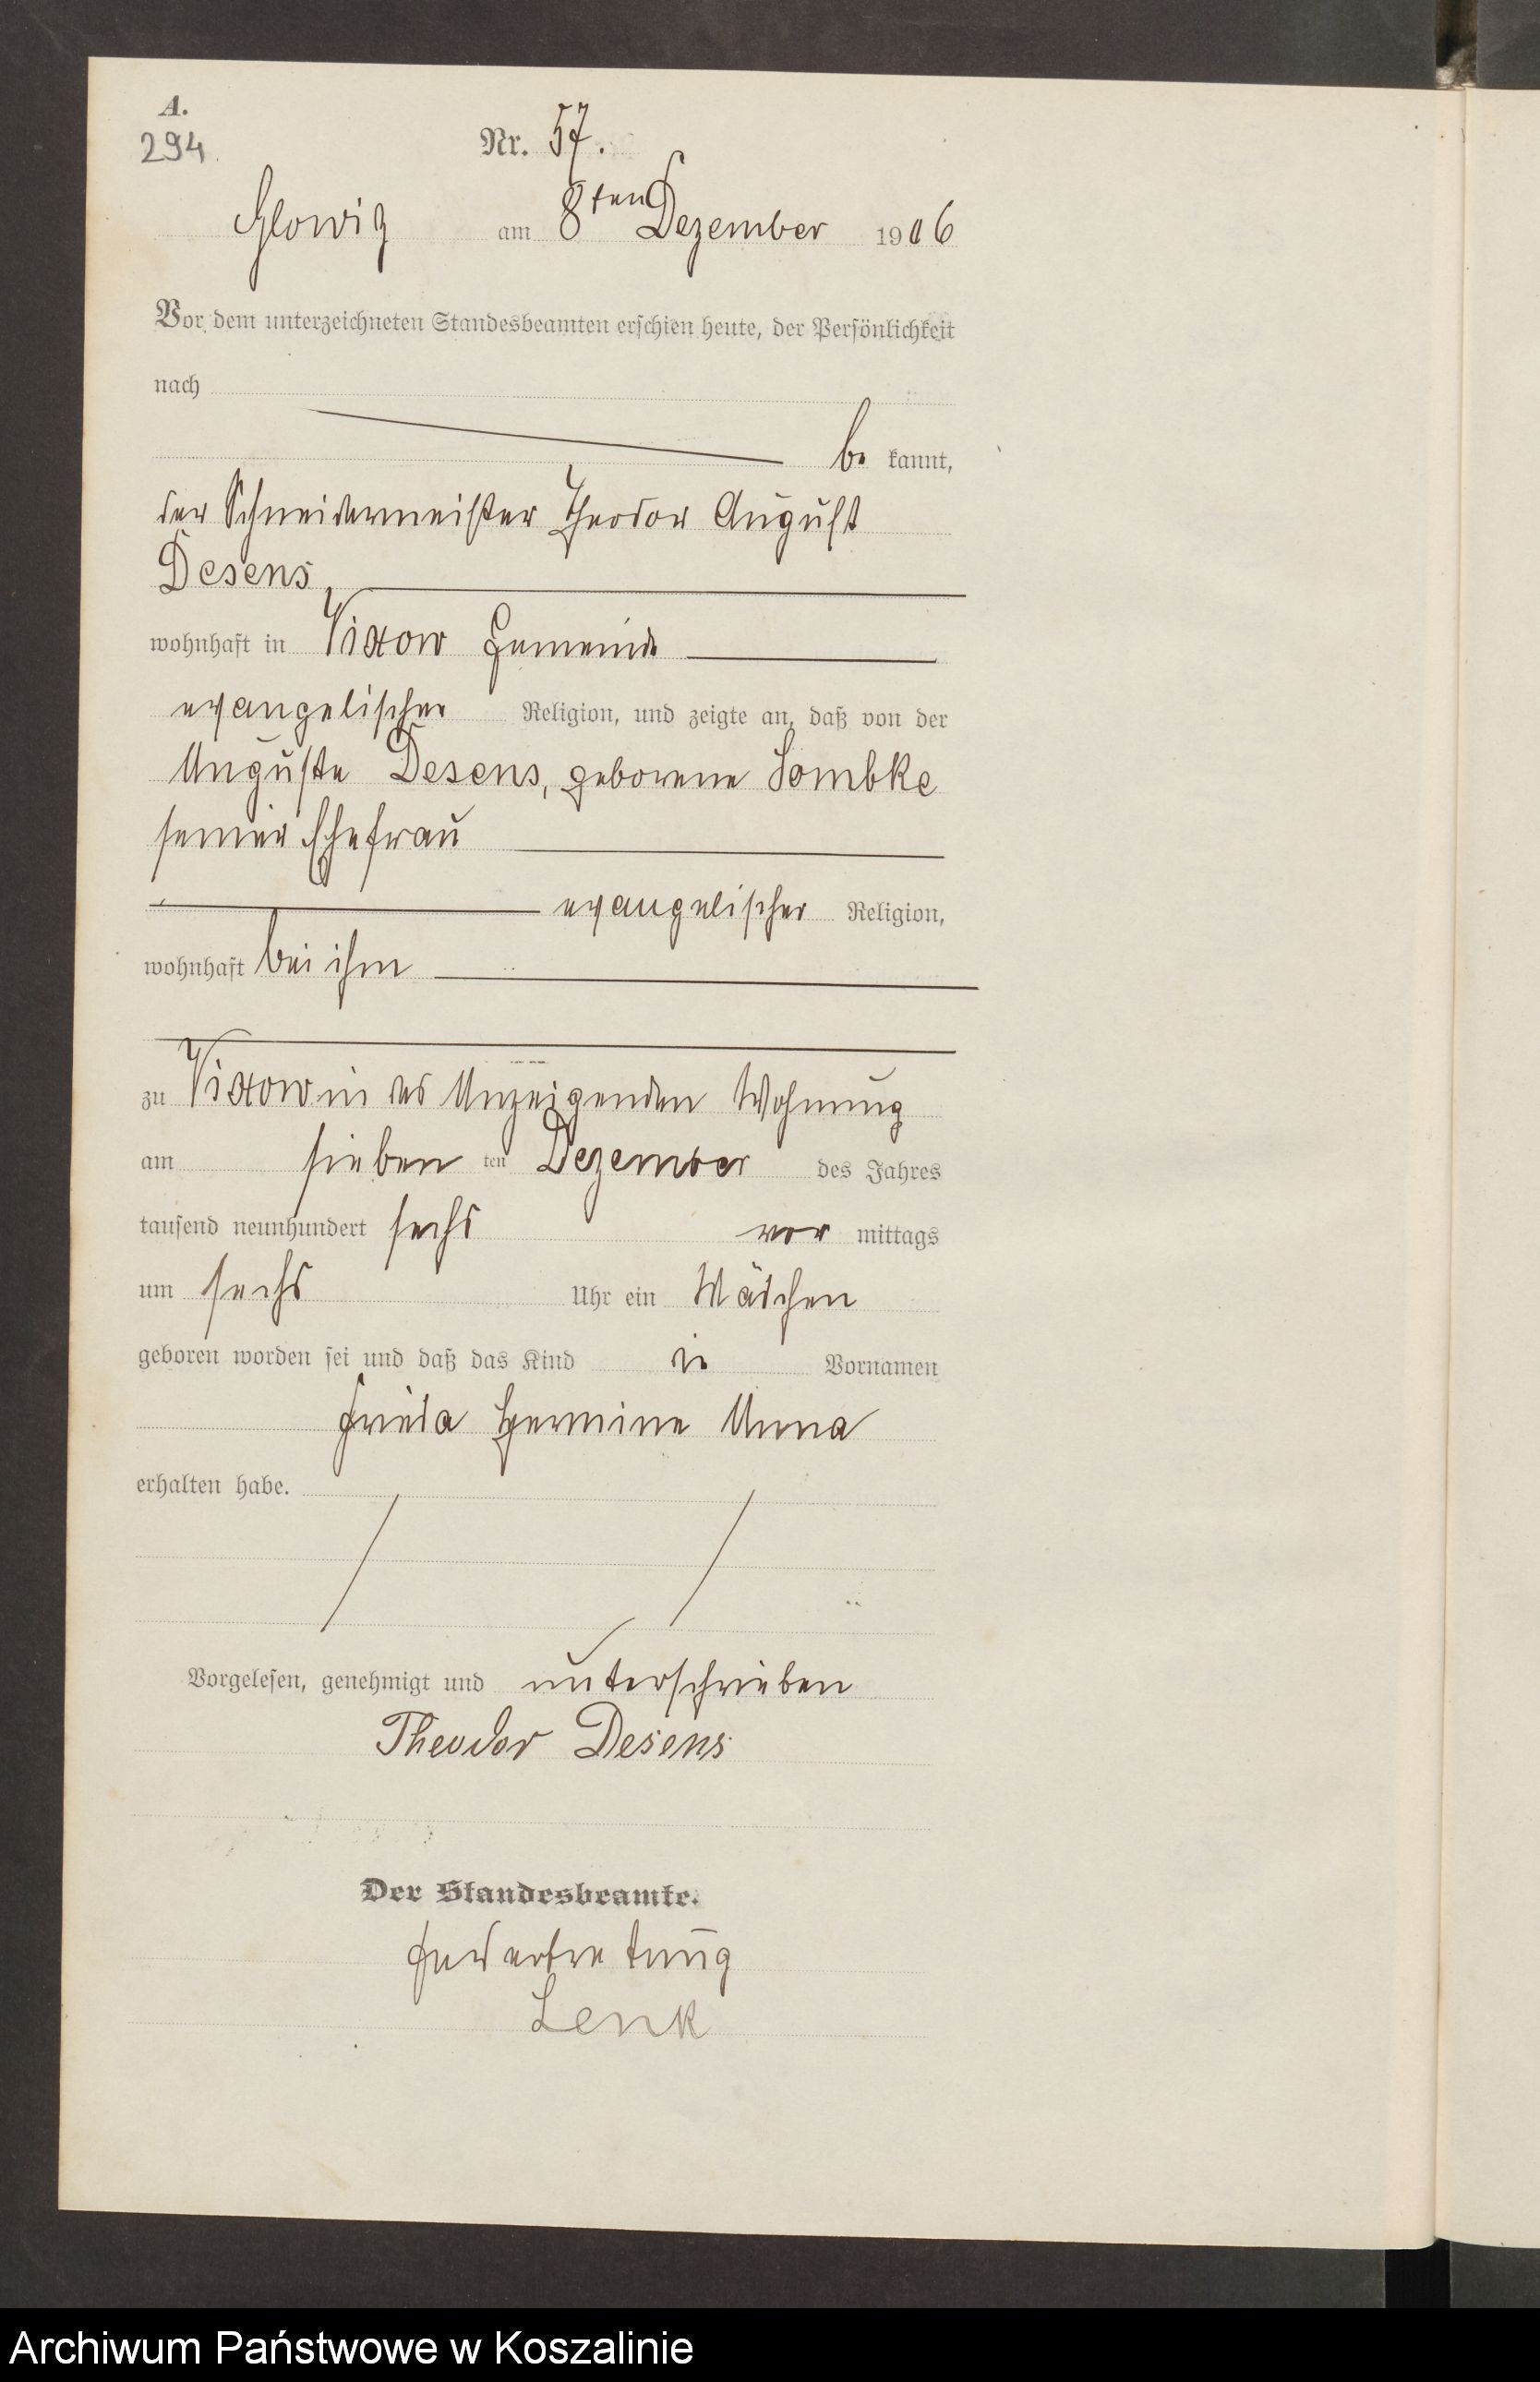 A.
294.
Nr. 57.
Glowitz am 8ten Dezember 1906
Vor dem unterzeichneten Standesbeamten erschien heute, der Persönlichkeit
nach
be kannt,
der Schneidermeister Theodor August
Desens,
wohnhaft in Vixow Gemeinde
evangelischer Religion, und zeigte an, daß von der
Auguste Desens, geborene Lombke
seiner Ehefrau
evangelischer Religion,
wohnhaft bei ihm
zu Vixow in des Anzeigenden Wohnung
am sieben ten Dezember des Jahres
tausend neunhundert sechs vor mittags
um sechs Uhr ein Mädchen
geboren worden sei und daß das Kind die Vornamen
Frieda Hermine Anna
erhalten habe.
Vorgelesen, genehmigt und unterschrieben
Theodor Desens
Der Standesbeamte.
In Vertretung
Lenk
Archiwum Państwowe w Koszalinie